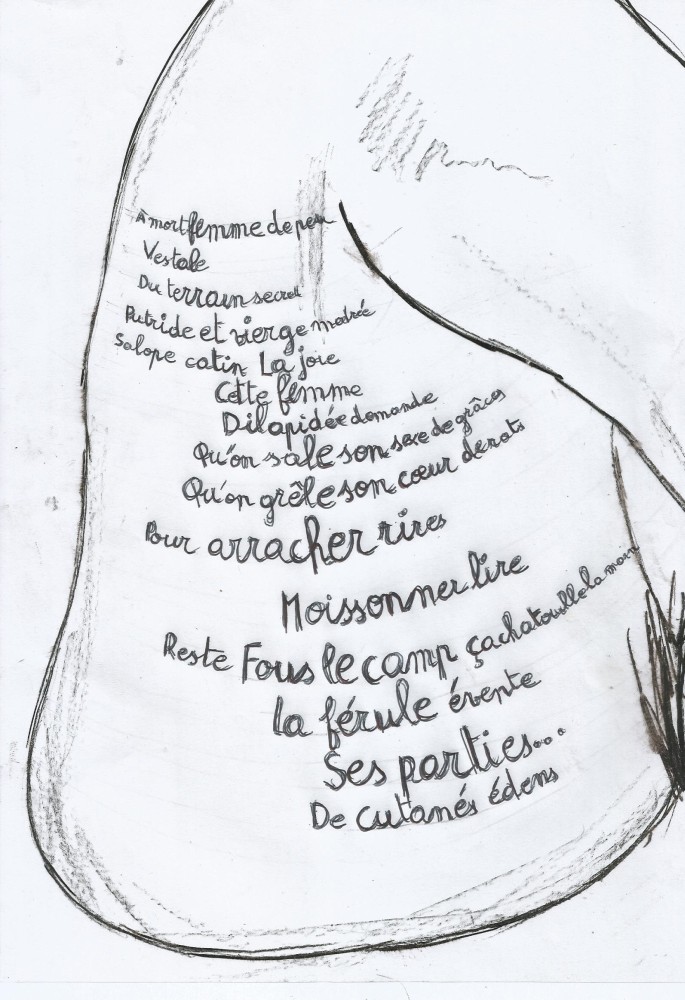 À mort femme de peu
Vestale
Du terrain secret
Putride et vierge madrée
Salope catin La joie
Cette femme
Dilapidée demande
Qu'on sale son sexe de grâces
Qu'on grêle son cœur de rats
Pour arracher rires
Moissonner lire
Reste Fous le camp ça chatouille la main
La férule évente
Ses parties...
De cutanés édens